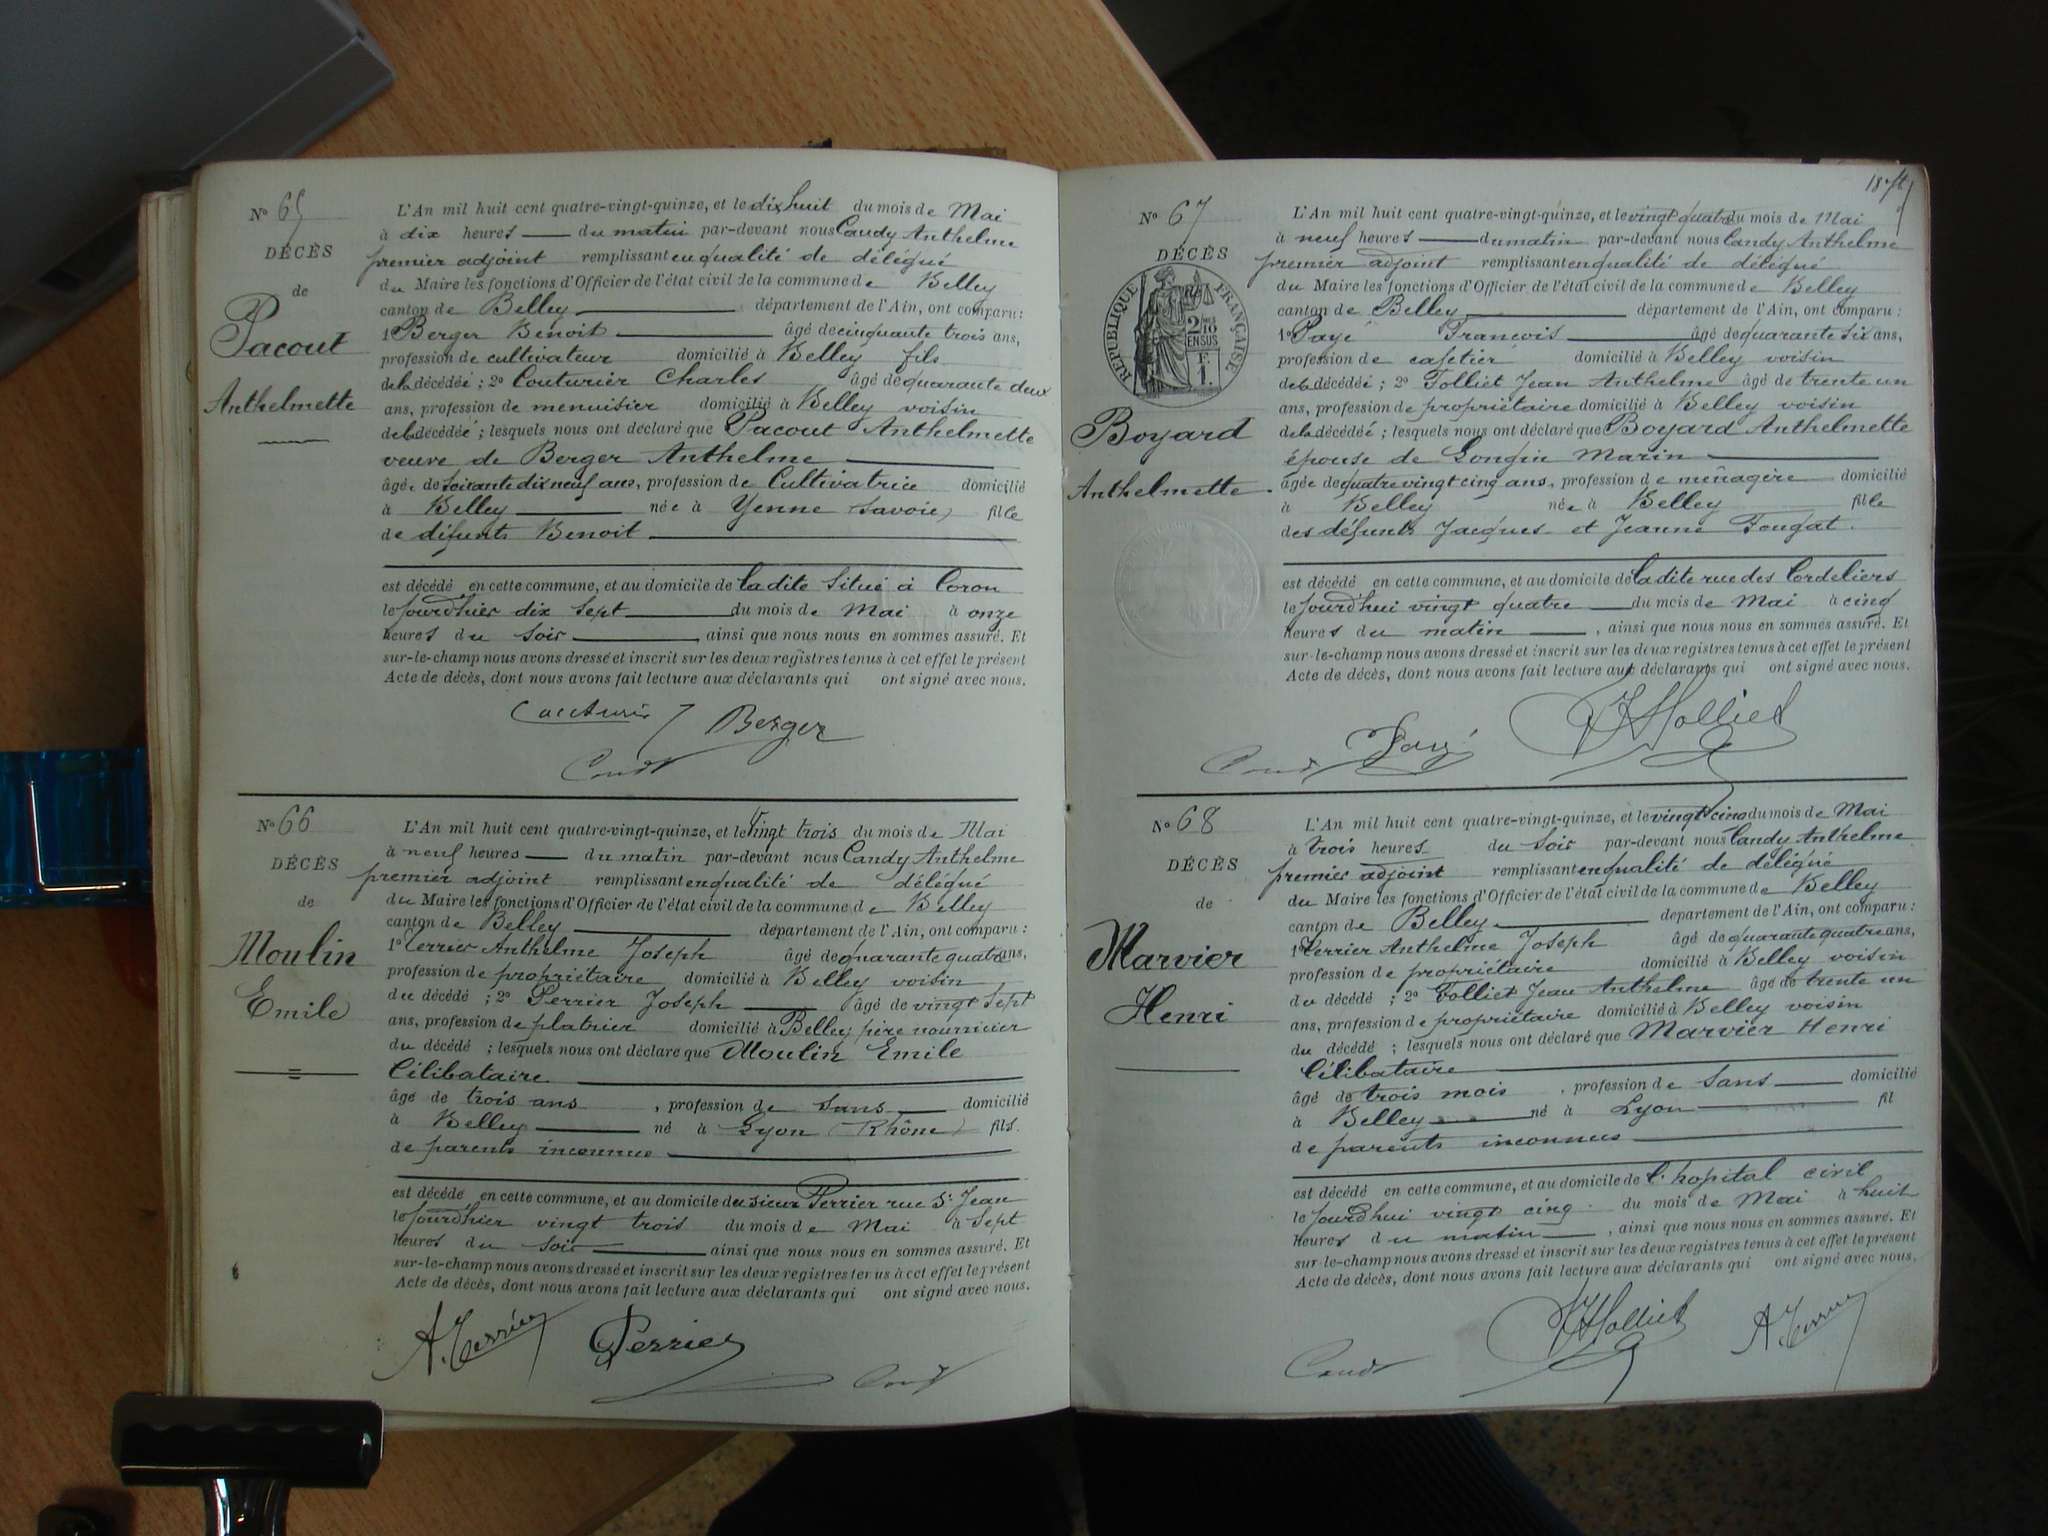 Nº 65
DÉCÈS
de
Pacout
Anthelmette
L'An mil huit cent quatre-vingt-quinze, et le dix huit du mois de Mai
à dix heures du matin par-devant nous Candy Anthelme
premier adjoint remplissant en qualité de délégué
du Maire les fonctions d'Officier de l'état civil de la commune de Belley
canton de Belley département de l'Ain, ont comparu :
1º Berger Benoit âgé de cinquante trois ans,
profession de cultivateur domicilié à Belley fils
de la décédée ; 2º Couturier Charles âgé de quarante deux
ans, profession de menuisier domicilié à Belley voisin
de la décédée ; lesquels nous ont déclaré que Pacout Anthelmette
veuve de Berger Anthelme
âgée de soixante dix neuf ans, profession de Cultivatrice domicilié
à Belley née à Yenne (Savoie) fille
de défunts Benoit
est décédé en cette commune, et au domicile de ladite situé à Coron
le jourd'hier dix sept du mois de Mai à onze
heures du soir, ainsi que nous nous en sommes assuré. Et
sur-le-champ nous avons dressé et inscrit sur les deux registres tenus à cet effet le présent
Acte de décès, dont nous avons fait lecture aux déclarants qui ont signé avec nous.
Berger
Nº 66
DÉCÈS
de
Moulin
Emile
L'An mil huit cent quatre-vingt-quinze, et le vingt trois du mois de Mai
à neuf heures du matin par-devant nous Candy Anthelme
premier adjoint remplissant en qualité de délégué
du Maire les fonctions d'Officier de l'état civil de la commune de Belley
canton de Belley département de l'Ain, ont comparu :
1º Terrier Anthelme Joseph âgé de quarante quatre ans,
profession de propriétaire domicilié à Belley voisin
du décédé ; 2º Perrier Joseph âgé de vingt sept
ans, profession de platrier domicilié à Belley père nourricier
du décédé ; lesquels nous ont déclaré que Moulin Emile
Célibataire
âgé de trois ans, profession de sans domicilié
à Belley né à Lyon (Rhône) fils
de parents inconnus
est décédé en cette commune, et au domicile du sieur Perrier rue St Jean
le jourd'hier vingt trois du mois de Mai à sept
heures du soir ainsi que nous nous en sommes assuré. Et
sur-le-champ nous avons dressé et inscrit sur les deux registres tenus à cet effet le présent
Acte de décès, dont nous avons fait lecture aux déclarants qui ont signé avec nous.
A. Terrier Perrier
Nº 67
DÉCÈS
RÉPUBLIQUE FRANÇAISE
2/10 EN SUS
F. 1.
Boyard
Anthelmette
L'An mil huit cent quatre-vingt-quinze, et le vingt quatre du mois de Mai
à neuf heures du matin par-devant nous Candy Anthelme
premier adjoint remplissant en qualité de délégué
du Maire les fonctions d'Officier de l'état civil de la commune de Belley
canton de Belley département de l'Ain, ont comparu :
1º Payé Francois âgé de quarante six ans,
profession de cafetier domicilié à Belley voisin
de la décédée ; 2º Folliet Jean Anthelme âgé de trente un
ans, profession de propriétaire domicilié à Belley voisin
de la décédée ; lesquels nous ont déclaré que Boyard Anthelmette
épouse de Longin Marin
âgée de quatre vingt cinq ans, profession de ménagère domicilié
à Belley née à Belley fille
des défunts Jacques et Jeanne Fougat.
est décédé en cette commune, et au domicile de ladite rue des Cordeliers
le jourd'hui vingt quatre du mois de Mai à cinq
heures du matin, ainsi que nous nous en sommes assuré. Et
sur-le-champ nous avons dressé et inscrit sur les deux registres tenus à cet effet le présent
Acte de décès, dont nous avons fait lecture aux déclarants qui ont signé avec nous.
Payé JAFolliet
Nº 68
DÉCÈS
de
Marvier
Henri
L'An mil huit cent quatre-vingt-quinze, et le vingt cinq du mois de Mai
à trois heures du soir par-devant nous Candy Anthelme
premier adjoint remplissant en qualité de délégué
du Maire les fonctions d'Officier de l'état civil de la commune de Belley
canton de Belley département de l'Ain, ont comparu :
1º Terrier Anthelme Joseph âgé de quarante quatre ans,
profession de propriétaire domicilié à Belley voisin
du décédé ; 2º Folliet Jean Anthelme âgé de trente un
ans, profession de propriétaire domicilié à Belley voisin
du décédé ; lesquels nous ont déclaré que Marvier Henri
Célibataire
âgé de trois mois, profession de sans domicilié
à Belley né à Lyon fil
de parents inconnus
est décédé en cette commune, et au domicile de l'hopital civil
le jourd'hui vingt cinq du mois de Mai à huit
heures du matin, ainsi que nous nous en sommes assuré. Et
sur-le-champ nous avons dressé et inscrit sur les deux registres tenus à cet effet le présent
Acte de décès, dont nous avons fait lecture aux déclarants qui ont signé avec nous.
JAFolliet